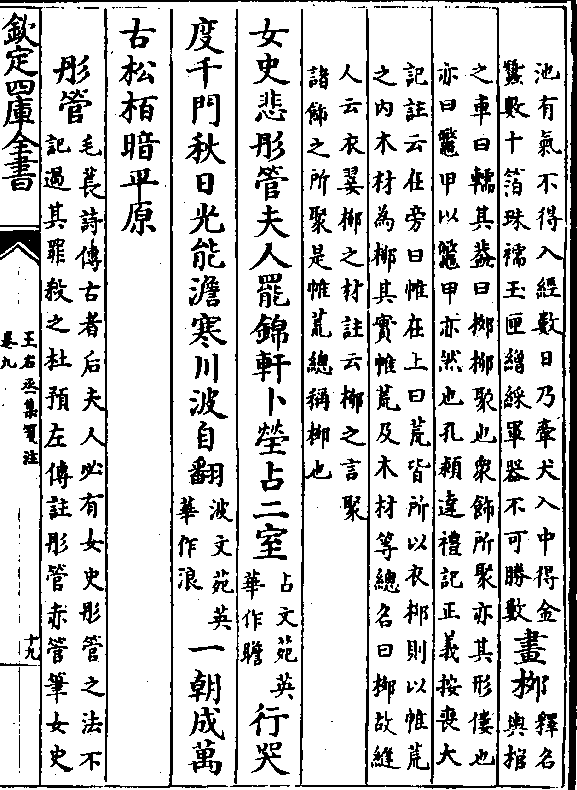 池有氣不得入經數日乃牽犬入中得金
蠶數十箔珠襦玉匣繒綵軍器不可勝數
畫栁
釋名
輿棺
之車曰轜其葢曰栁栁聚也衆飾所聚亦其形僂也
亦曰鼈甲以鼈甲亦然也孔頴達禮記正義按喪大
記註云在旁曰帷在上曰荒皆所以衣栁則以帷荒
之内木材為栁其實帷荒及木材等總名曰栁故縫
人云衣翣栁之材註云栁之言聚
諸飾之所聚是帷荒總稱栁也
女史悲彤管夫人罷錦軒卜塋占二室
占文苑英
華作瞻
行哭
度千門秋日光能澹寒川波自翻
波文苑英
華作浪
一朝成萬
古松栢暗平原
彤管
毛萇詩傳古者后夫人必有女史彤管之法不
記過其罪殺之杜預左傳註彤管赤管筆女史
欽定四庫全書
王右丞集箋注
卷九
十九